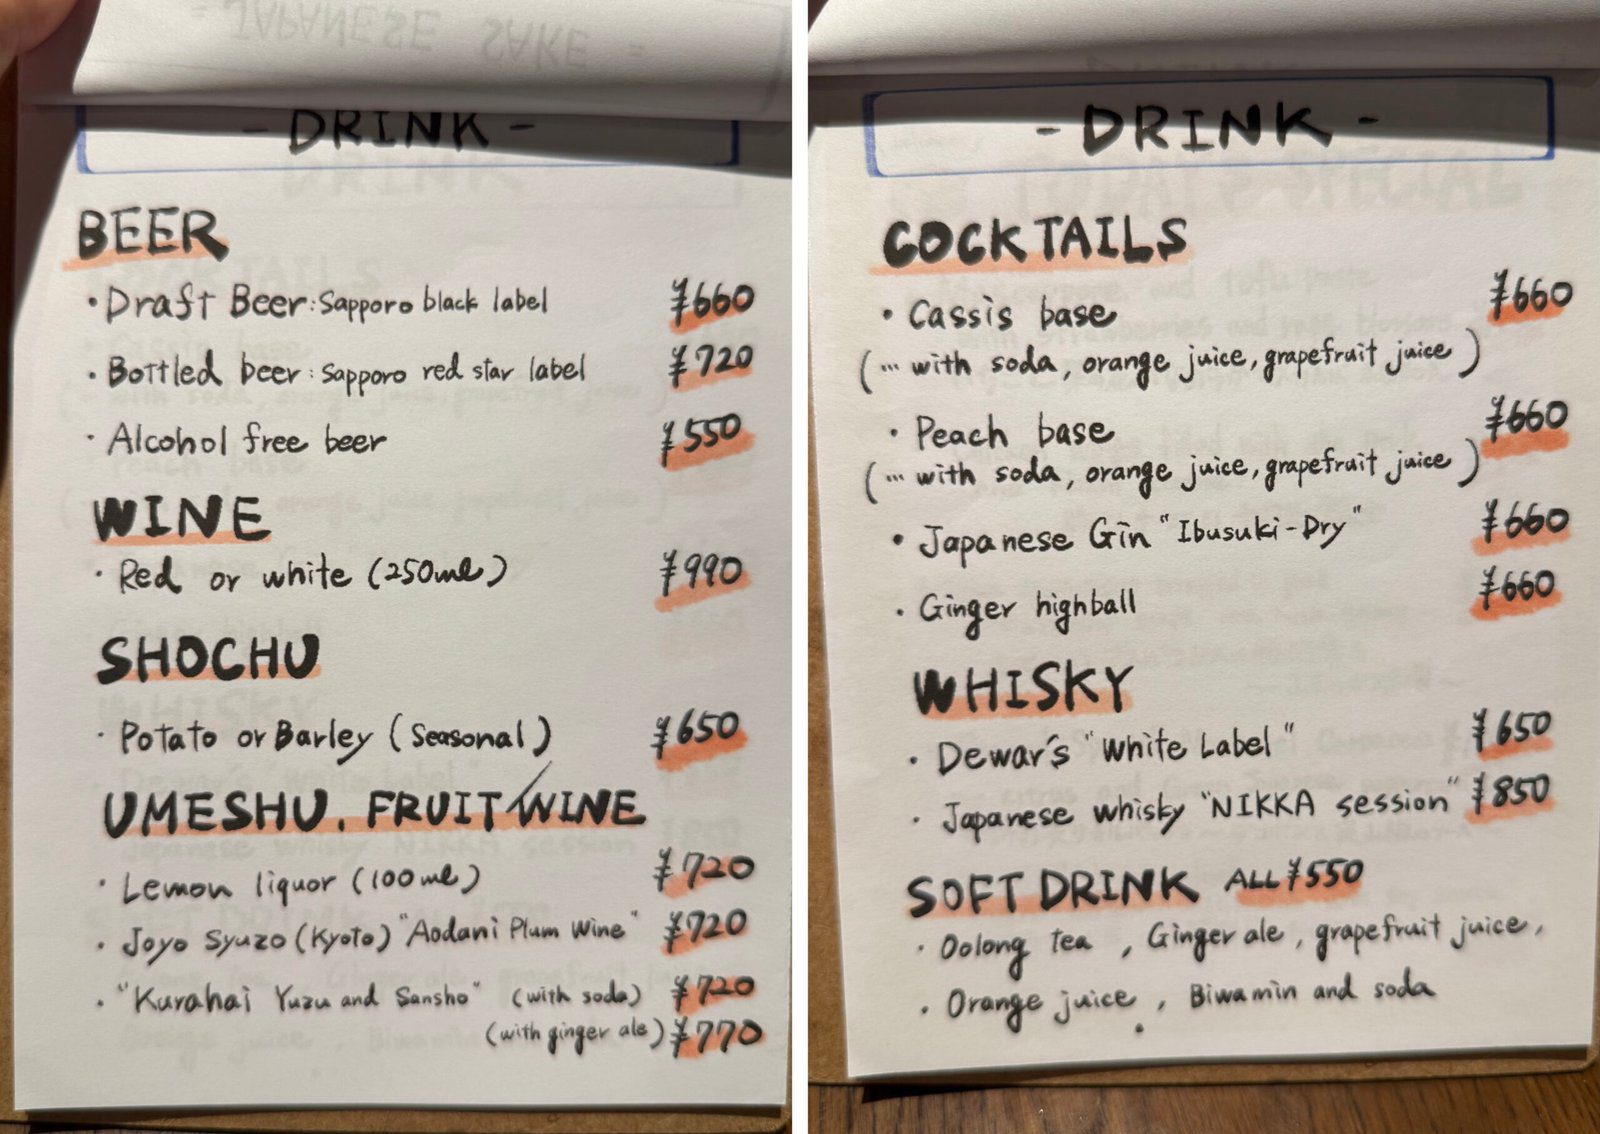 JAPANESE SAKE =
- DRINK -
BEER
・Draft Beer:Sapporo black label ¥660
・Bottled beer:Sapporo red star label ¥720
・Alcohol free beer ¥550
WINE
・Red or white (250ml) ¥990
SHOCHU
・Potato or Barley (Seasonal) ¥650
UMESHU. FRUIT WINE
・Lemon liquor (100ml) ¥720
・Joyo Syuzo (Kyoto) "Aodani Plum Wine" ¥720
・"Kurahai Yuzu and Sansho" (with soda) ¥720
(with ginger ale) ¥770
- DRINK -
COCKTAILS
・Cassis base ¥660
(… with soda, orange juice, grapefruit juice)
・Peach base ¥660
(… with soda, orange juice, grapefruit juice)
・Japanese Gin "Ibusuki-Dry" ¥660
・Ginger highball ¥660
WHISKY
・Dewar's "White Label" ¥650
・Japanese whisky "NIKKA session" ¥850
SOFT DRINK ALL ¥550
・Oolong tea , Ginger ale , grapefruit juice,
・Orange juice , Biwamin and soda